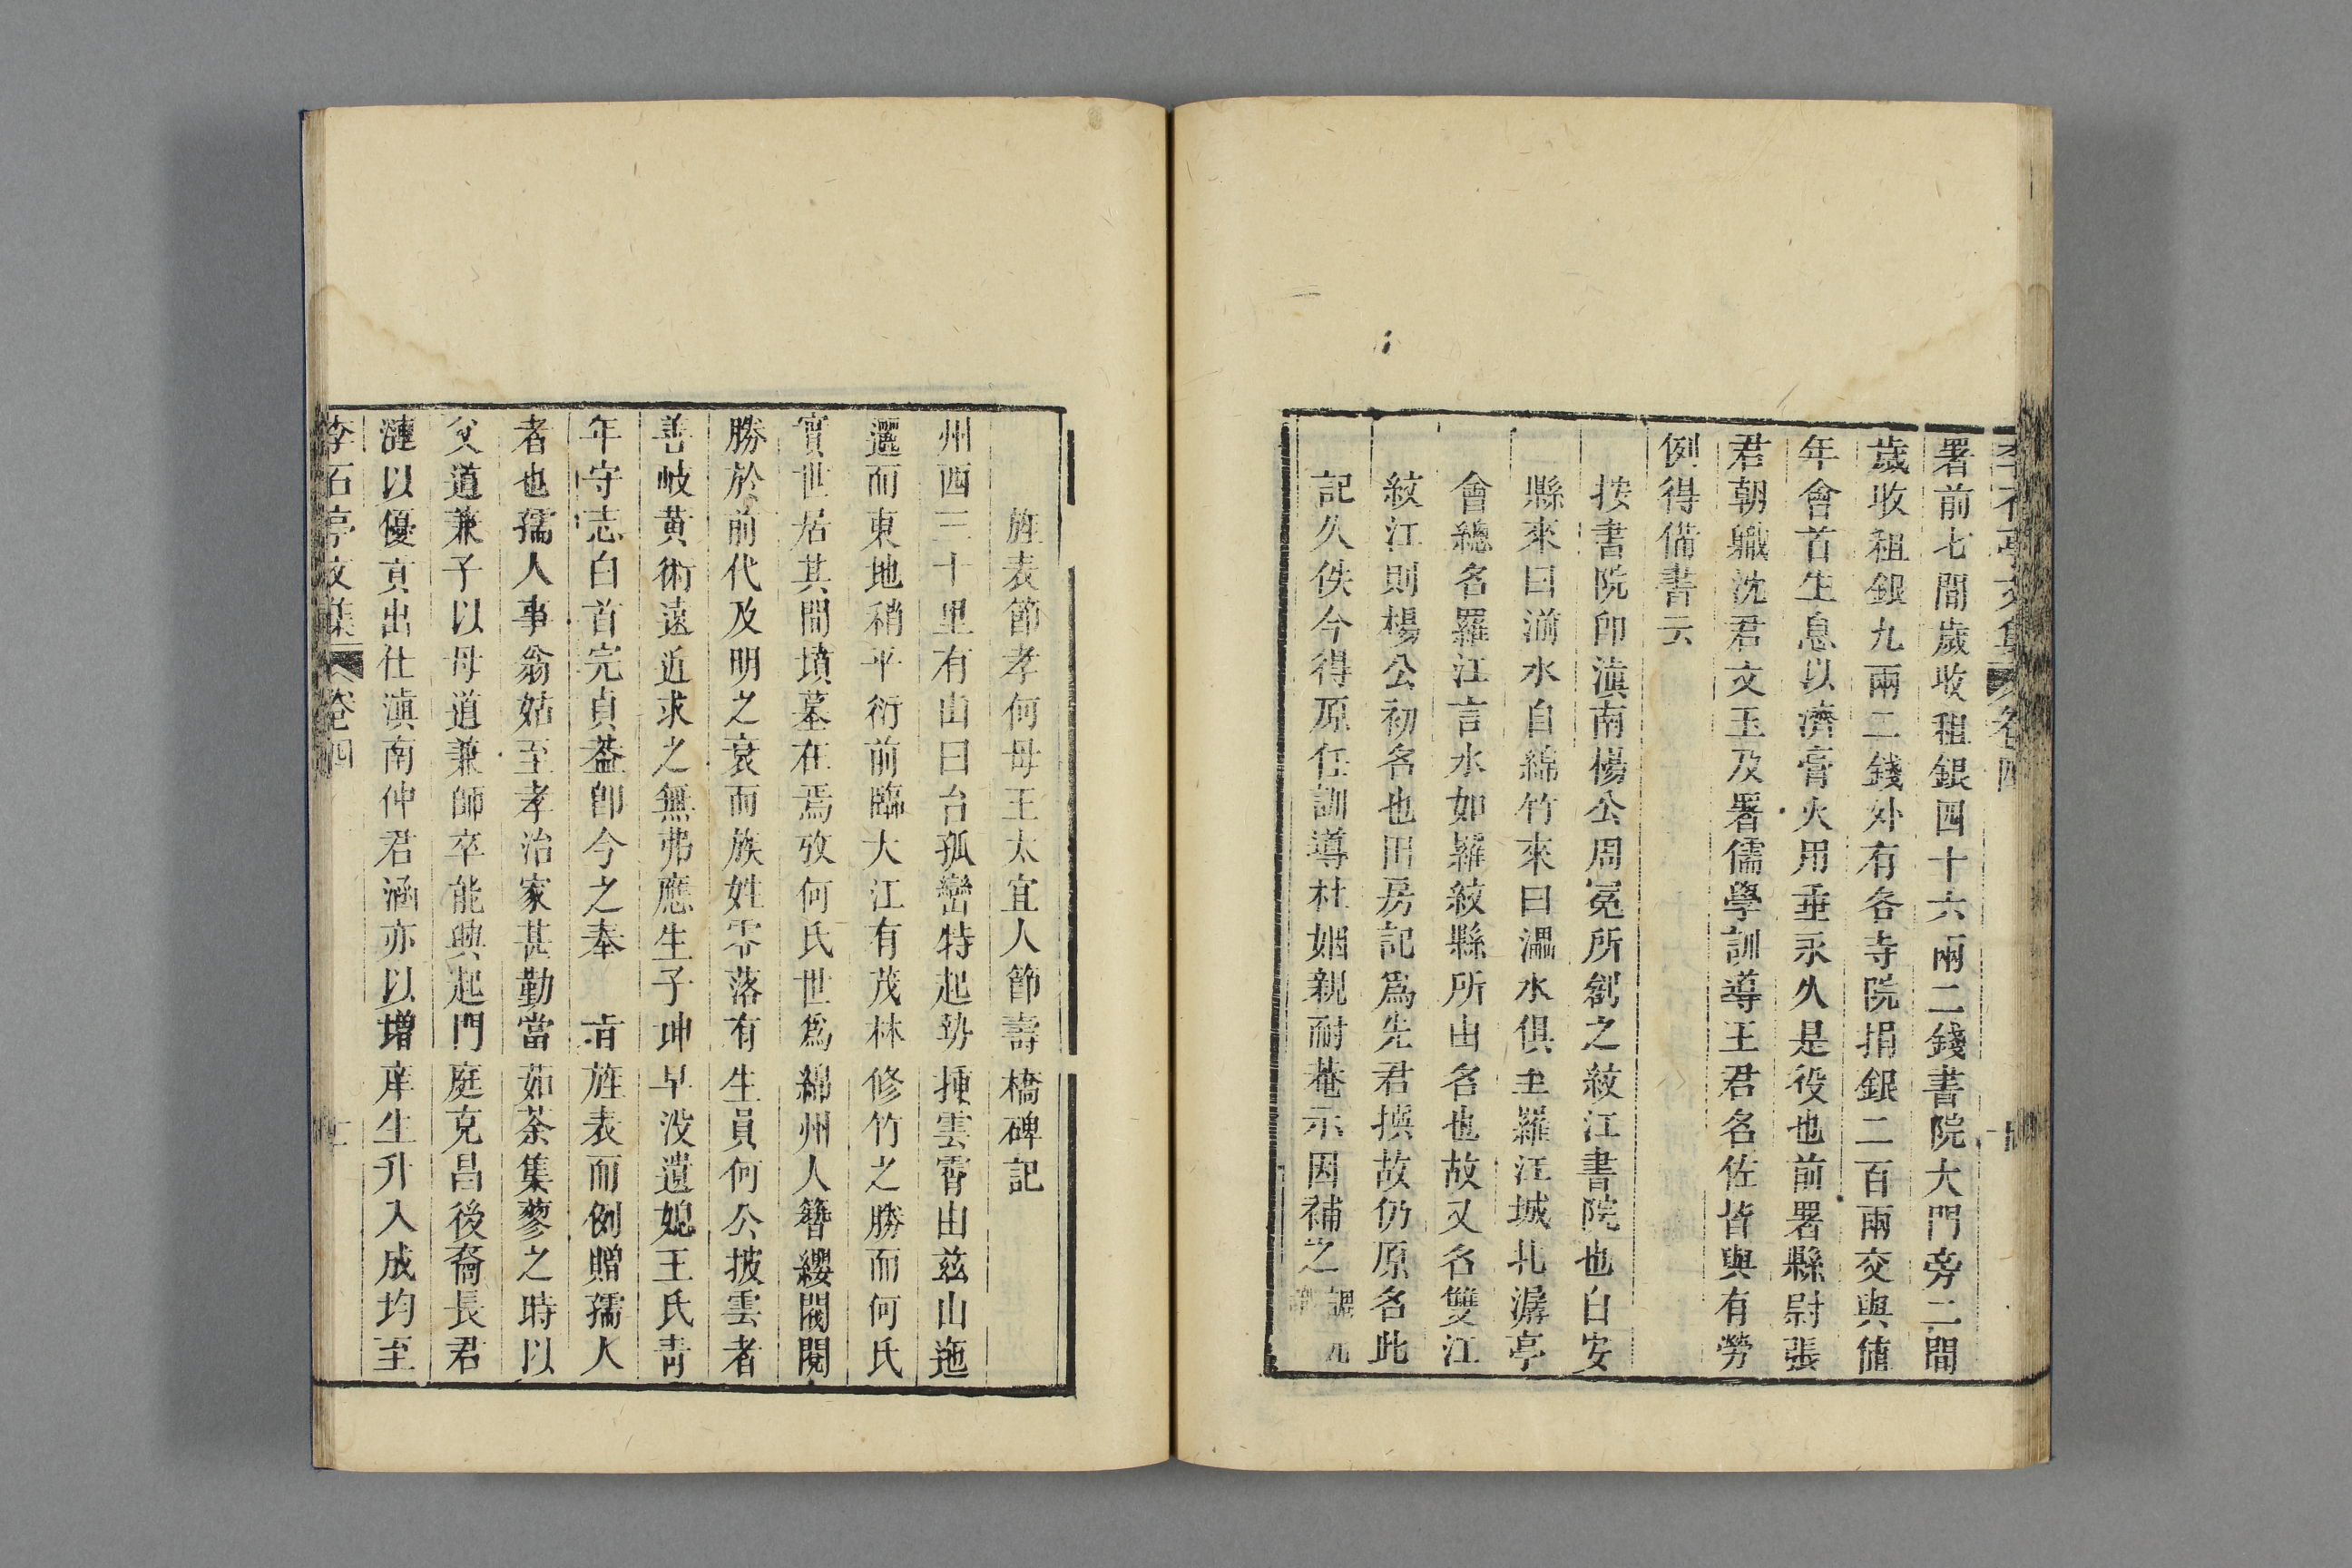 李石亭文集 卷四
署前七間歲收租銀四十六兩二錢書院大門旁二間
歲收租銀九兩二錢外有各寺院捐銀二百兩交與値
年會首生息以濟膏火用垂永久是役也前署縣尉張
君朝職沈君文玉及署儒學訓導王君名佐皆與有勞
例得備書云
按書院卽滇南楊公周冕所創之紋江書院也白安
縣來曰湔水自綿竹來曰灅水俱至羅江城北潺亭
會總名羅江言水如羅紋縣所由名也故又名雙江
紋江則楊公初名也田房記爲先君撰故仍原名此
記久佚今得原任訓導杜姻親耐菴示因補之
旌表節孝何母王太宜人節壽橋碑記
州西三十里有山曰台孤巒特起勢揷雲霄由茲山迤
邐而東地稍平衍前臨大江有茂林修竹之勝而何氏
實世居其間墳墓在焉攷何氏世爲綿州人簪纓閥閱
勝於前代及明之衰而族姓零落有生員何公披雲者
善岐黃術遠近求之無弗應生子坤早没遺媳王氏靑
年守志白首完貞葢卽今之奉 旨旌表而例贈孺人
者也孺人事翁姑至孝治家甚勤當茹荼集蓼之時以
父道兼子以母道兼師卒能興起門庭克昌後裔長君
漣以優貢出仕滇南仲君涵亦以增庠生升入成均至
李石亭文集 卷四